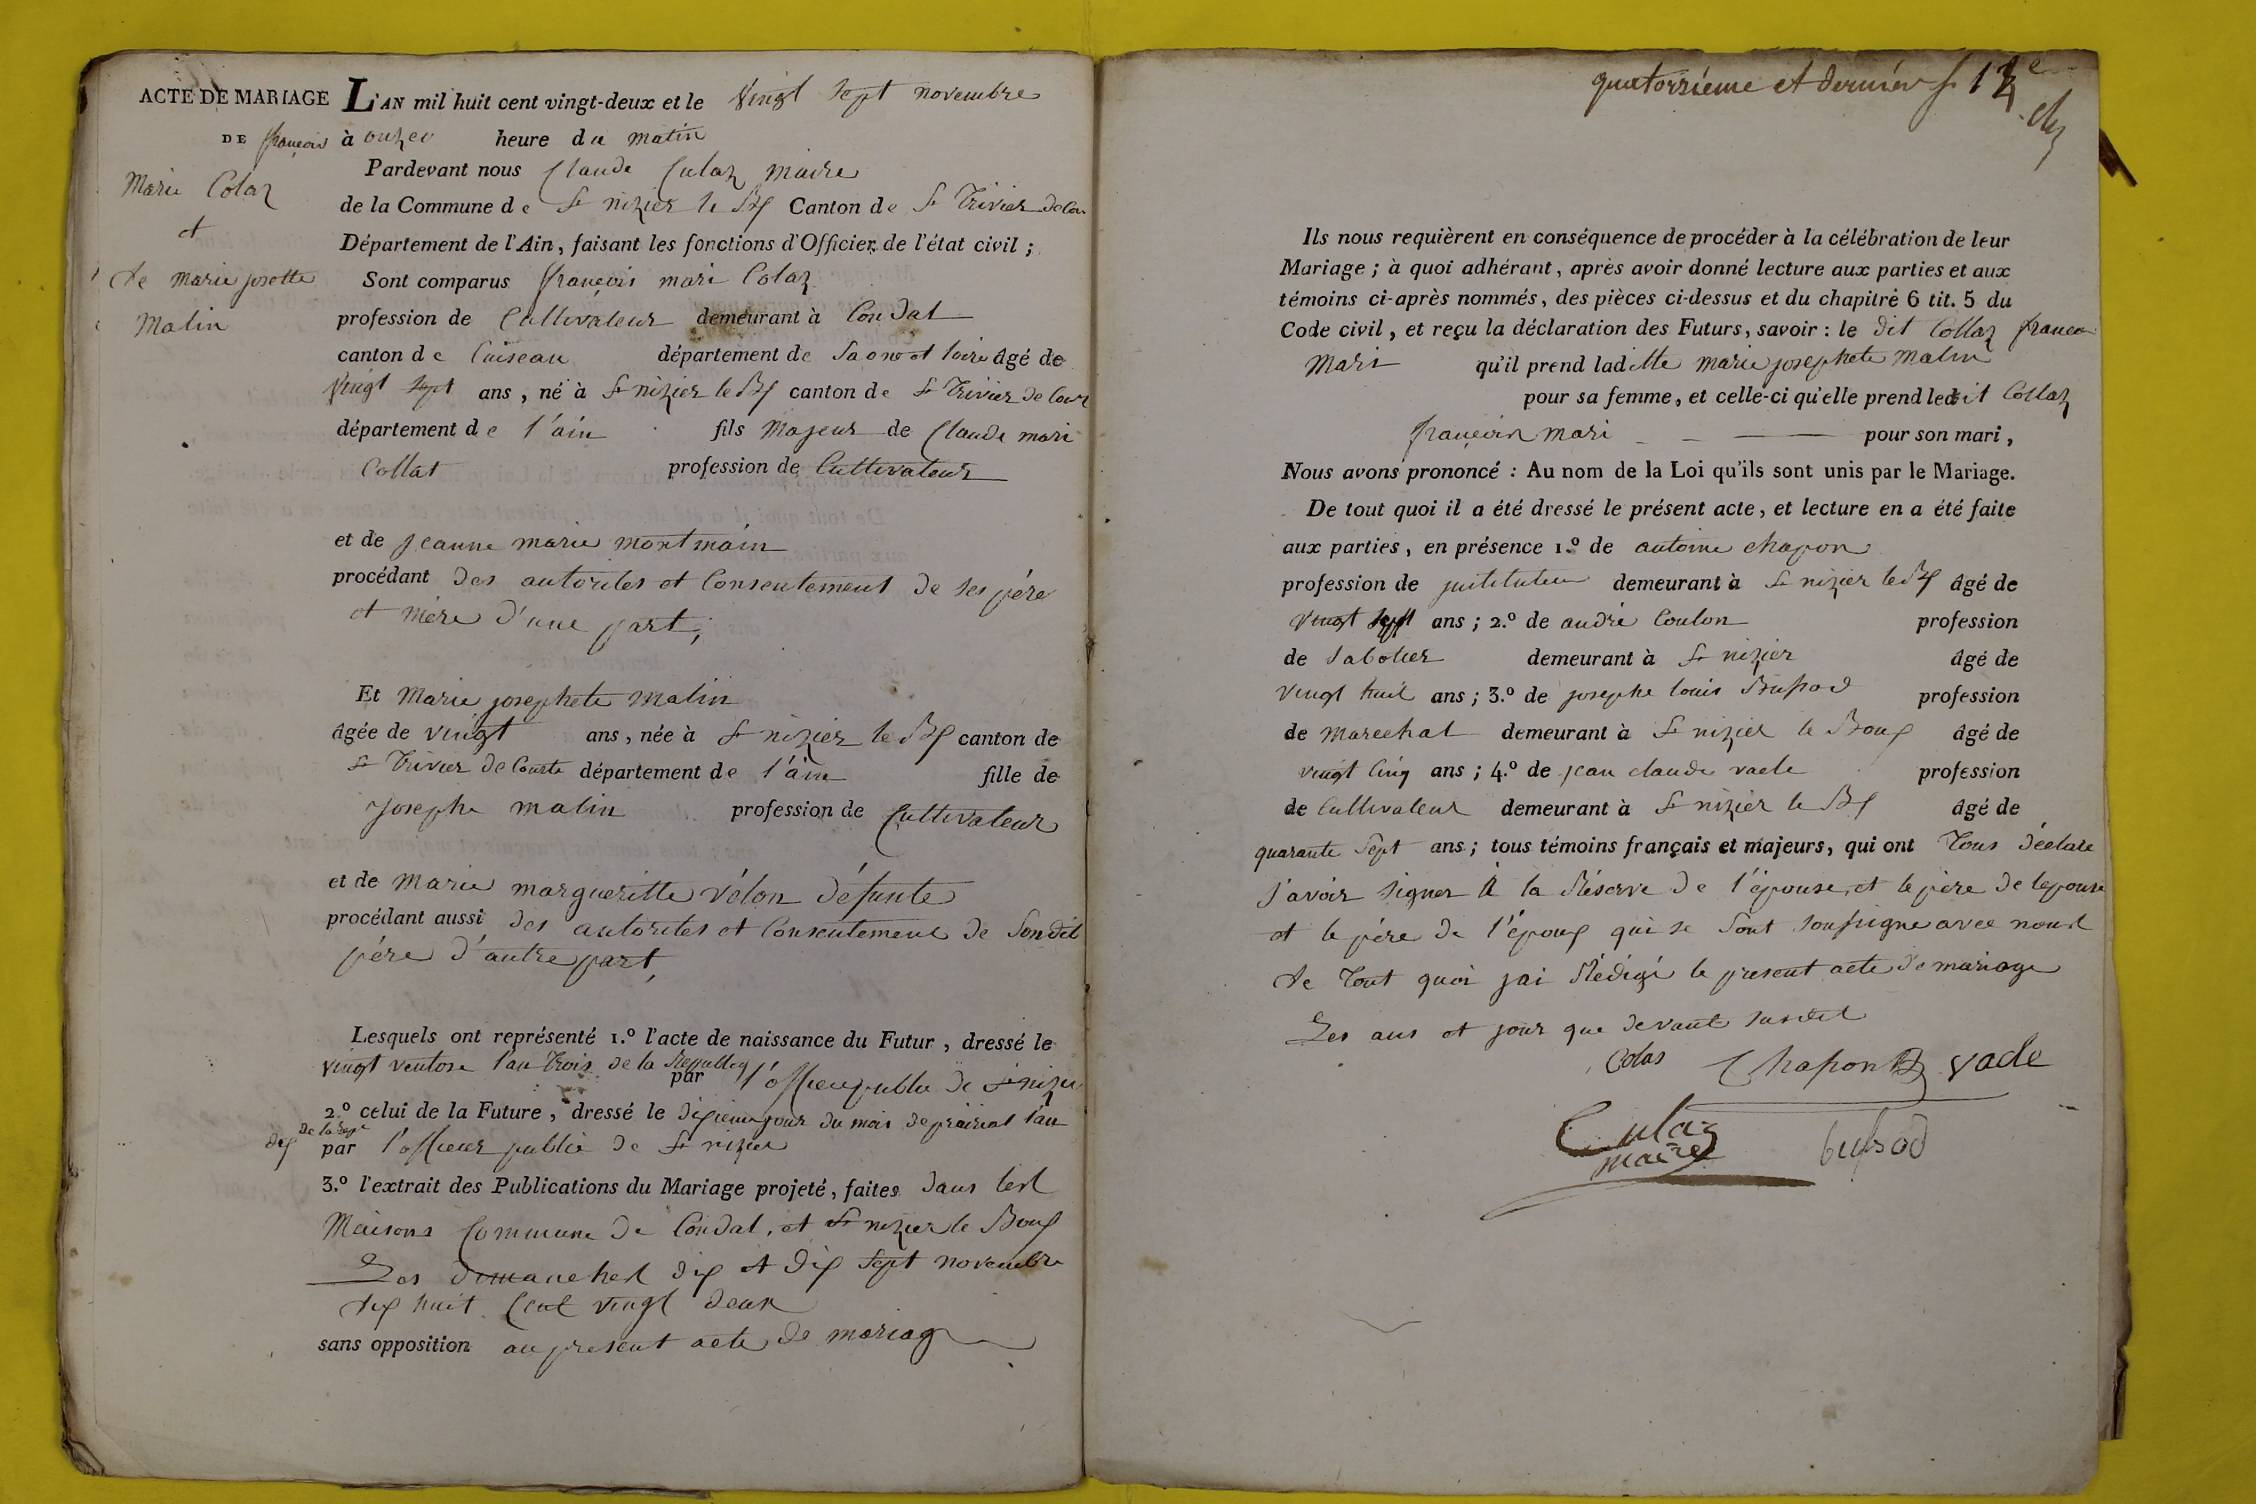 ACTE DE MARIAGE
DE françois
Marie Colaz
et
de marie josette
Malin
L'AN mil huit cent vingt-deux et le vingt sept novembre
à onzeu heure du matin
Pardevant nous Claude Culaz maire
de la Commune de St nizier le Bx Canton de St Trivier de Cou
Département de l'Ain, faisant les fonctions d'Officier de l'état civil ;
Sont comparus françois mari Colaz
profession de Cultivateur demeurant à Condat
canton de Cuiseau département de Saone et loire âgé de
vingt sept ans, né à St nizier le Bx canton de St Trivier de Cour
département de l'ain fils Majeur de Claude mari
Collat profession de Cultivateur
et de jeanne marie montmain
procédant des autorites et Consentement de ses pére
et mére d'une part,
Et Marie josephete malin
âgée de vingt ans, née à St nizier le Bx canton de
St Trivier de Courte département de l'ain fille de
Josephe malin profession de Cultivateur
et de Marie margueritte vélon défunte
procédant aussi des autorites et Consentement de Son dit
pére d'autre part,
Lesquels ont représenté 1.º l'acte de naissance du Futur, dressé le
vingt ventose l'an trois de la Republiq par l'officier public de St nizier
2.º celui de la Future, dressé le dixieme jour du mois de prairial l'an
dix de la Rep.e par l'officier public de St nizier
3.º l'extrait des Publications du Mariage projeté, faites dans les
Maisons Commune de Condal, et St nizier le Boux
Les dimanches dix et dix sept novembre
dix huit Cent vingt deux
sans opposition au present acte de mariag
quatorziéme et dernier f. 14e
Ils nous requièrent en conséquence de procéder à la célébration de leur
Mariage ; à quoi adhérant, après avoir donné lecture aux parties et aux
témoins ci-après nommés, des pièces ci-dessus et du chapitre 6 tit. 5 du
Code civil, et reçu la déclaration des Futurs, savoir : le dit Collaz françoi
Mari qu'il prend laditte marie josephete malin
pour sa femme, et celle-ci qu'elle prend ledit Collaz
françois mari pour son mari,
Nous avons prononcé : Au nom de la Loi qu'ils sont unis par le Mariage.
De tout quoi il a été dressé le présent acte, et lecture en a été faite
aux parties, en présence 1.º de antoine chapon
profession de jnstituteur demeurant à St nizier le Bx âgé de
vingt sept ans ; 2.º de andré Coulon profession
de Sabotier demeurant à St nizier âgé de
vingt huit ans ; 3.º de josephe louis Bufsod profession
de marechal demeurant à St nizier le Boux âgé de
vingt Cinq ans ; 4.º de jean claude vacle profession
de Cultivateur demeurant à St nizier le Bx âgé de
quarante Sept ans ; tous témoins français et majeurs, qui ont Tous déclare
savoir signer A la Réserve de l'épouse, et le pére de lepouse
et le pére de l'époux qui se Sont soussigne avec nous
de Tout quoi jai Rédigé le present acte de mariage
Les ans et jour que devant susdit
Colas Chapon vacle
Culaz
maire
bufsod